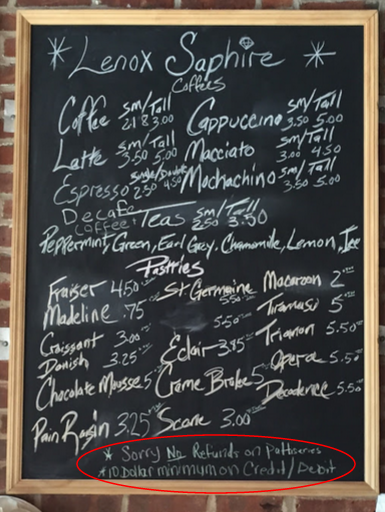 * Lenox Saphire *
Coffees
Coffee sm/Tall 2.18 3.00
Cappuccino sm/Tall 3.50 5.00
Latte sm/Tall 3.50 5.00
Macciato sm/Tall 3.00 4.50
Espresso single/Double 2.50 4.50
Mochachino sm/Tall 3.50 5.00
Decafe Coffee + Teas sm/Tall 2.50 3.50
Peppermint, Green, Earl Grey, Chamomile, Lemon, Ice
Pastries
Fraiser 4.50
St. Germaine 5.50
Macaroon 2
Madeline .75
Tiramasu 5
5.50
Trianon 5.50
Craissant 3.00
Danish 3.25
Eclair 3.85
Opera 5.50
Chocolate Mousse 5
Creme Brule 5
Decadence 5.50
Pain Raisin 3.25
Scone 3.00
* Sorry No Refunds on Pattiseries
*10 Dollar minimum on Credit/Debit